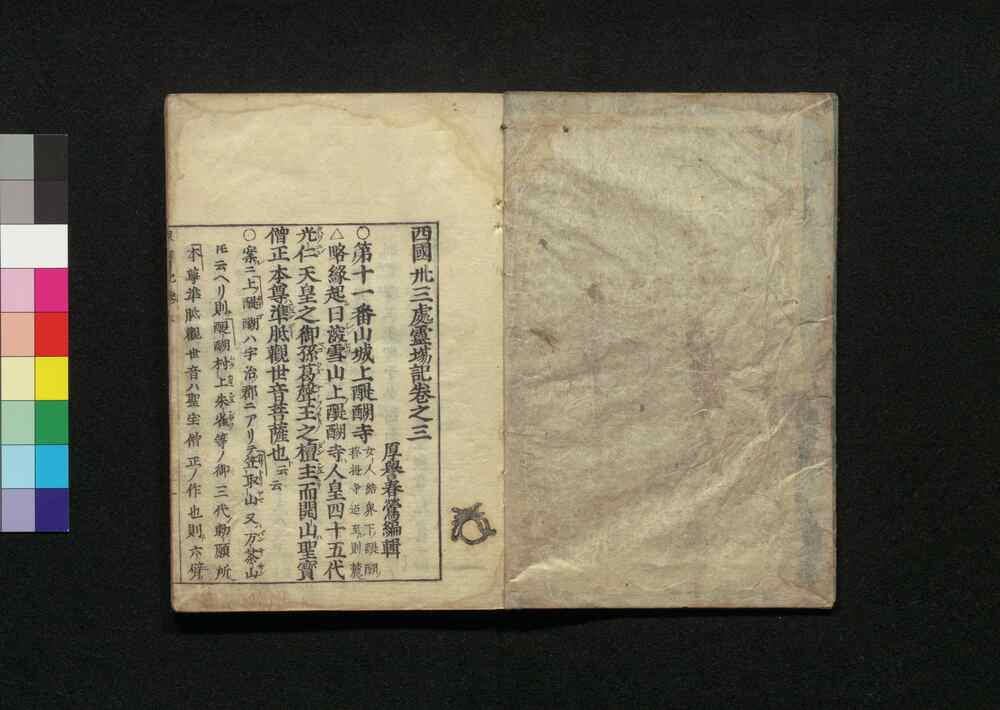 西國卅三處靈塲記卷之三
厚譽春鶯編輯
〇第十一番山城上醍醐寺女人結界下醍醐
菩提寺迄至則麓
△略縁起曰深雪山上醍醐寺人皇四十五代
光仁天皇之御孫葛聲王之檀主而開山聖寳
僧正本尊準胝觀世音菩薩也云云
〇案ニ上醍醐ハ宇治郡ニアリテ笠取山又万茶山
圧云ヘリ則醍醐村上朱雀等ノ御三代勅願所
本尊準胝觀世音ハ聖宝僧正ノ作也則六臂